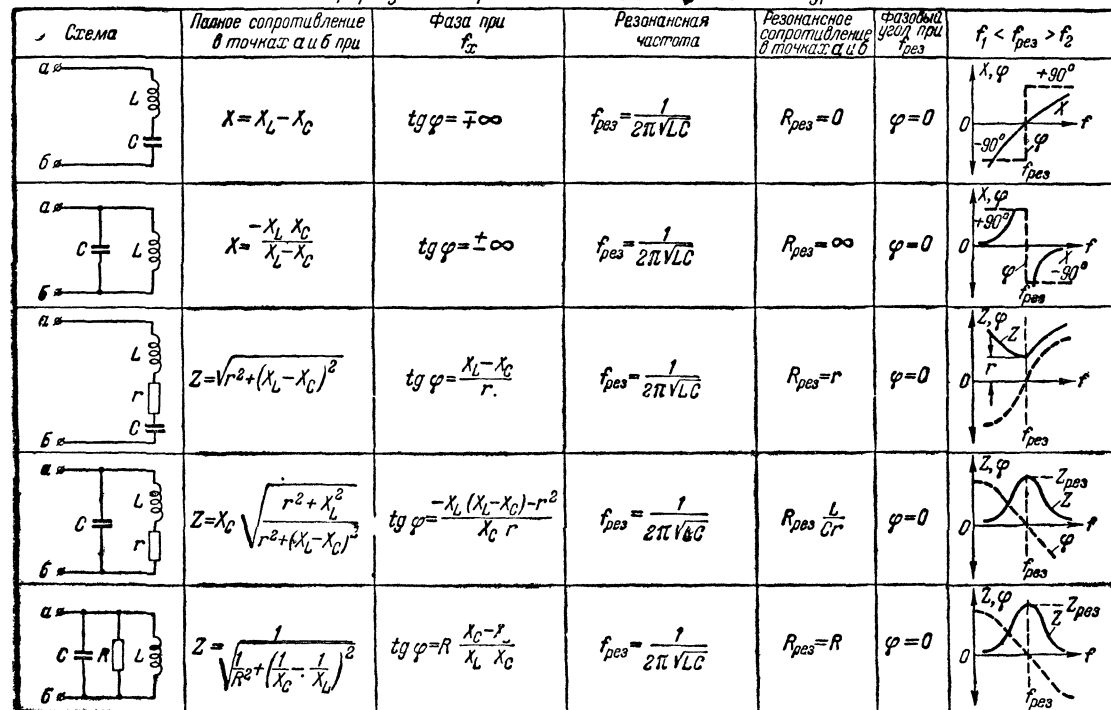 Схема
Полное сопротивление в точках а и б при
Фаза при fx
Резонансная частота
Резонансное сопротивление в точках а и б
Фазовый угол при fрез
f₁ < fрез > f₂
а
L
C
б
X = X_L − X_C
tg φ = ∓∞
fрез = 1/(2π√LC)
Rрез = 0
φ = 0
X, φ
+90°
X
0
f
−90°
φ
fрез
а
C
L
Б
X = −X_L X_C/(X_L − X_C)
tg φ = ±∞
fрез = 1/(2π√LC)
Rрез = ∞
φ = 0
X, φ
+90°
0
f
φ
X
−90°
fрез
а
L
r
C
Б
Z = √(r² + (X_L − X_C)²)
tg φ = (X_L − X_C)/r.
fрез = 1/(2π√LC)
Rрез = r
φ = 0
Z, φ
Z
r
0
f
fрез
а
C
L
r
б
Z = X_C √((r² + X_L²)/(r² + (X_L − X_C)²))
tg φ = (−X_L (X_L − X_C) − r²)/(X_C r)
fрез = 1/(2π√LC)
Rрез L/(Cr)
φ = 0
Z, φ
Zрез
Z
0
f
φ
fрез
а
C
R
L
б
Z = 1/√(1/R² + (1/X_C − 1/X_L)²)
tg φ = R (X_C − X)/(X_L X_C)
fрез = 1/(2π√LC)
Rрез = R
φ = 0
Z, φ
Zрез
Z
0
f
fрез